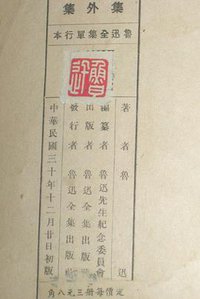 集外集
魯迅全集單行本
著者 魯迅
編纂者 魯迅先生紀念委員會
出版者 魯迅全集出版
發行者 魯迅全集出版
中華民國三十年十二月廿日初版
定價每册三元八角
魯迅